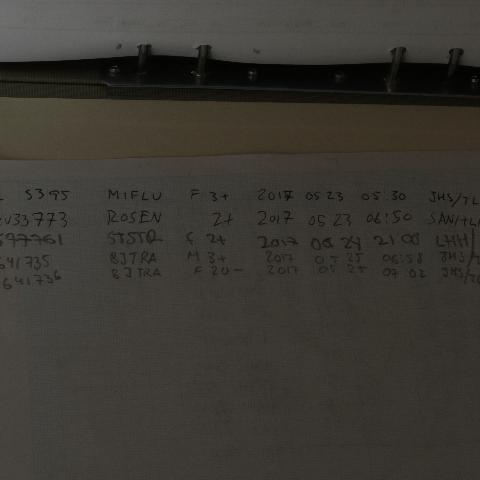 5395 MIFLU F 3+ 2017 05 23 05:30 JHS/TL
V33773 ROSEN 2+ 2017 05 23 06:50 SAN/TL
597761 2+ 2017 05 24 21 00 LHH/
641735 BJTRA M 3+ 2017 05 25 06:58 JHS/T
641736 BJTRA F 20- 2017 05 25 07 02 JHS/TL